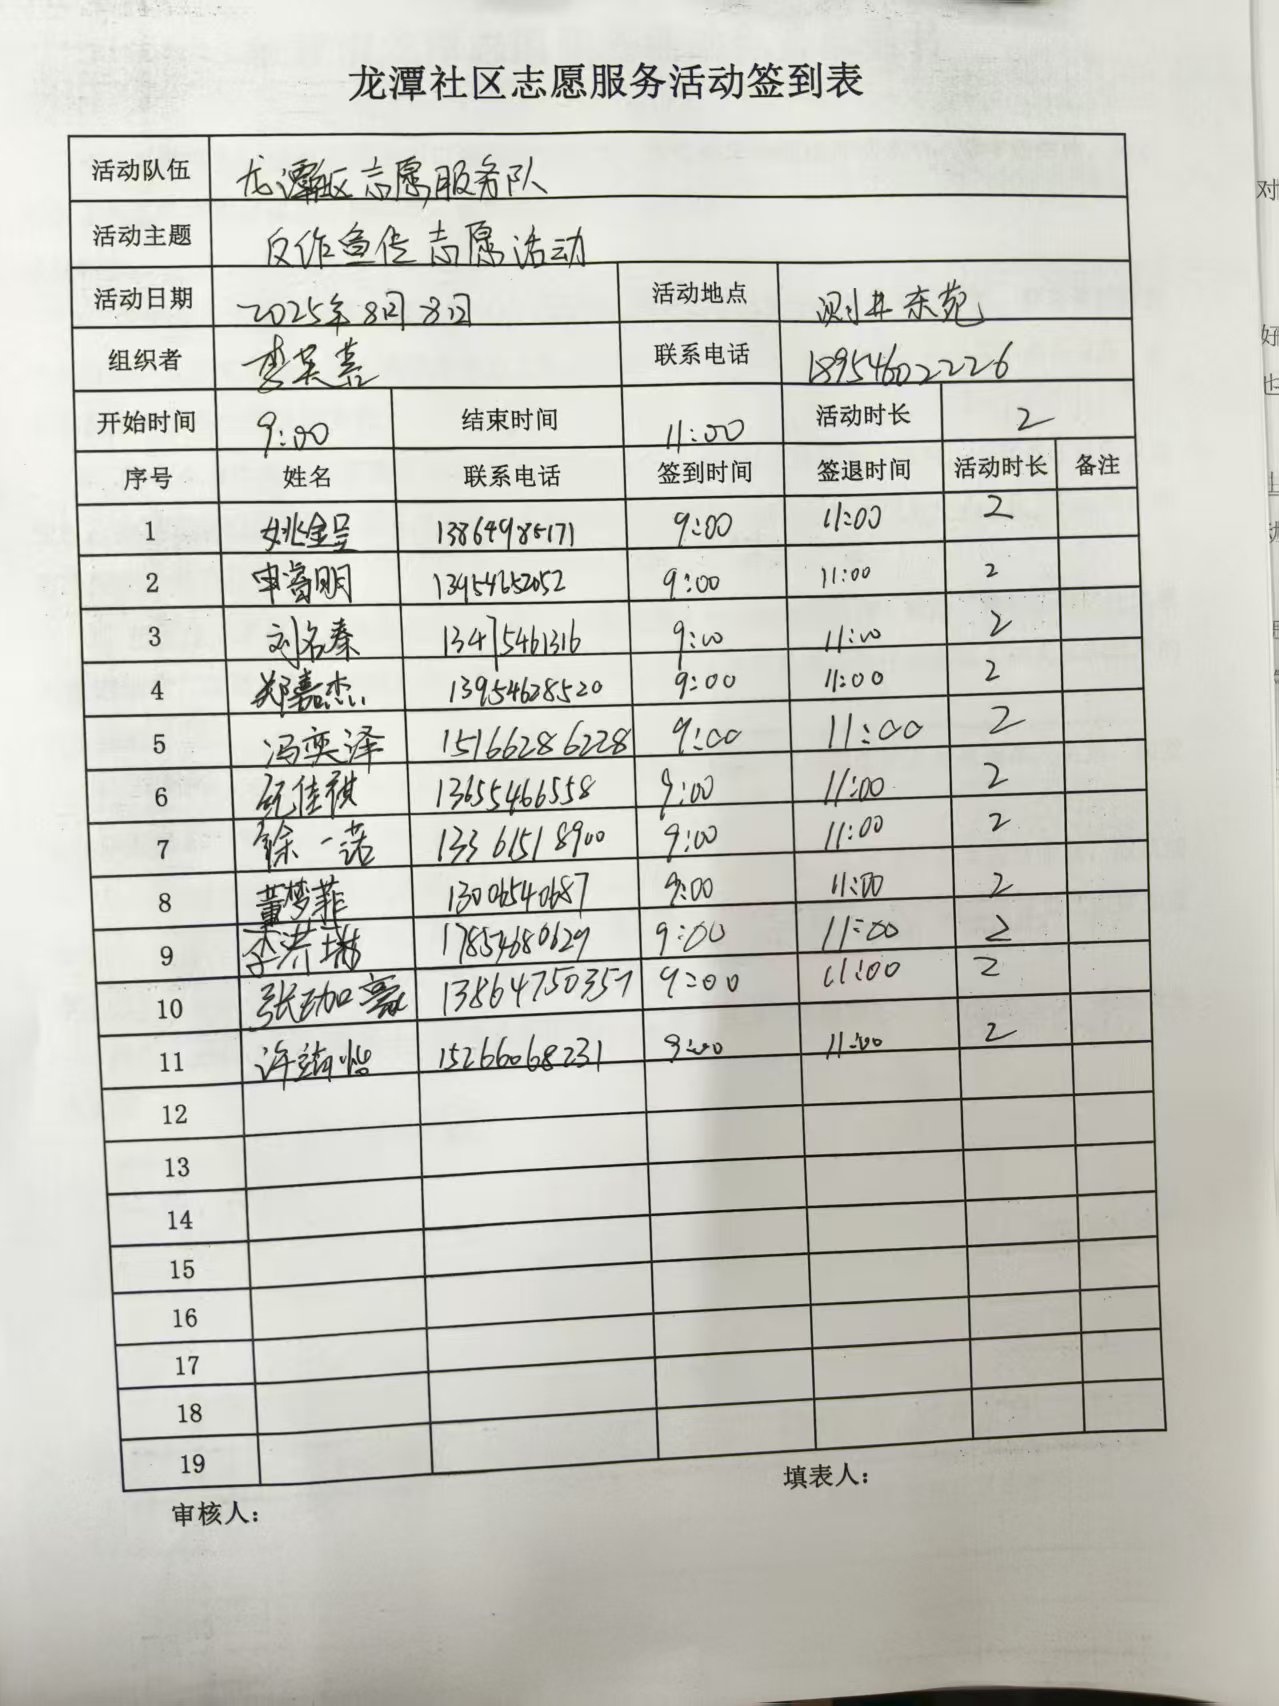 龙潭社区志愿服务活动签到表
活动队伍 龙潭社区志愿服务队
活动主题 反诈宣传志愿活动
活动日期 2025年8月8日 活动地点 测井东苑
组织者 李英嘉 联系电话 18954602226
开始时间 9:00 结束时间 11:00 活动时长 2
序号 姓名 联系电话 签到时间 签退时间 活动时长 备注
1 姚金呈 13864985171 9:00 11:00 2
2 申富明 13954652052 9:00 11:00 2
3 刘名秦 13475461316 9:00 11:00 2
4 郑嘉杰 13954628520 9:00 11:00 2
5 冯奕泽 15166286228 9:00 11:00 2
6 佳祺 13655466558 9:00 11:00 2
7 徐一诺 13361518900 9:00 11:00 2
8 董梦菲 13006540687 9:00 11:00 2
9 李洪 17854680629 9:00 11:00 2
10 张劭豪 13864750357 9:00 11:00 2
11 许靖怡 15266068231 9:00 11:00 2
12
13
14
15
16
17
18
19
审核人： 填表人：
对
好
也